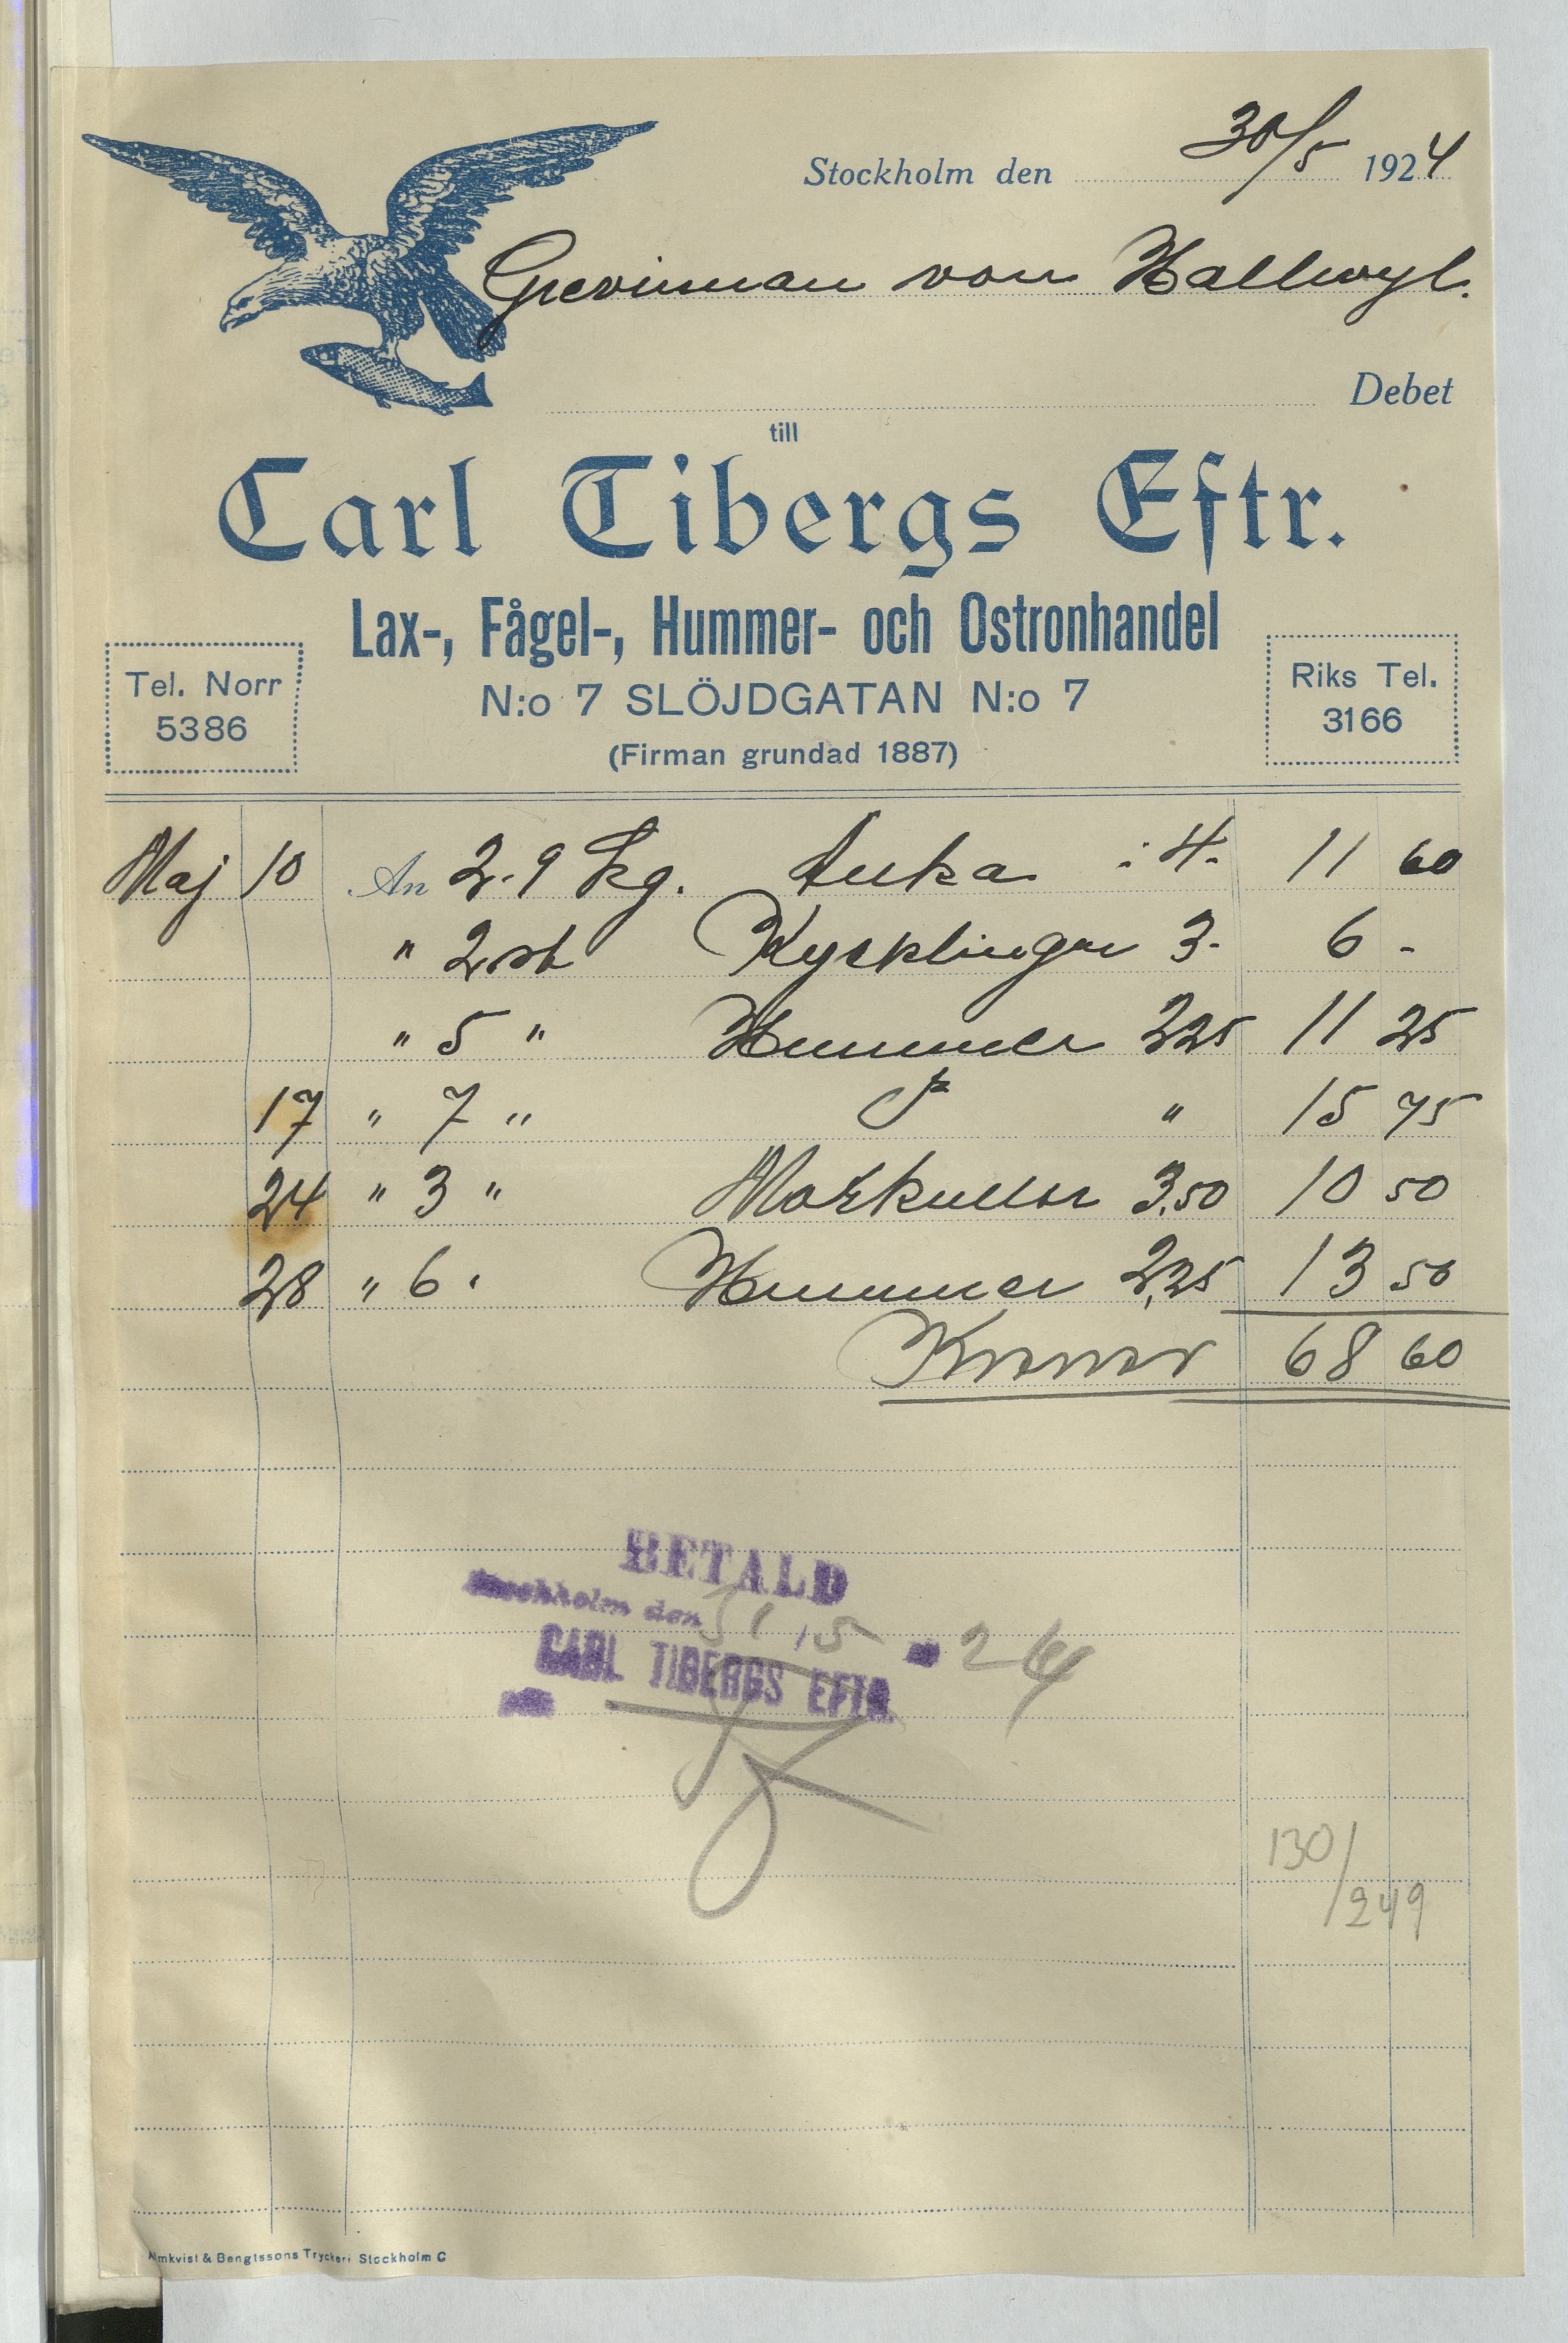 Stockholm den 30/5 1924
Grevinnan von Hallwyl.
Debet
till
Carl Tibergs Eftr.
Lax-, Fågel-, Hummer- och Ostronhandel
Tel. Norr
5386
N:o 7 SLÖJDGATAN N:o 7
(Firman grundad 1887)
Riks Tel.
3166
Maj 10 An 2.9 kg. Anka : 4. 11 60
" 2 st Kycklingar 3- 6 -
" 5 " Hummer 225 11 25
17 " 7 " " 15 75
24 " 3 " Morkullor 3.50 10 50
28 " 6 " Hummer 2,25 13 50
Kronor 68 60
BETALD
Stockholm den 31/5 24
CARL TIBERGS EFTR.
130/249
Almkvist & Bengtssons Tryckeri Stockholm C